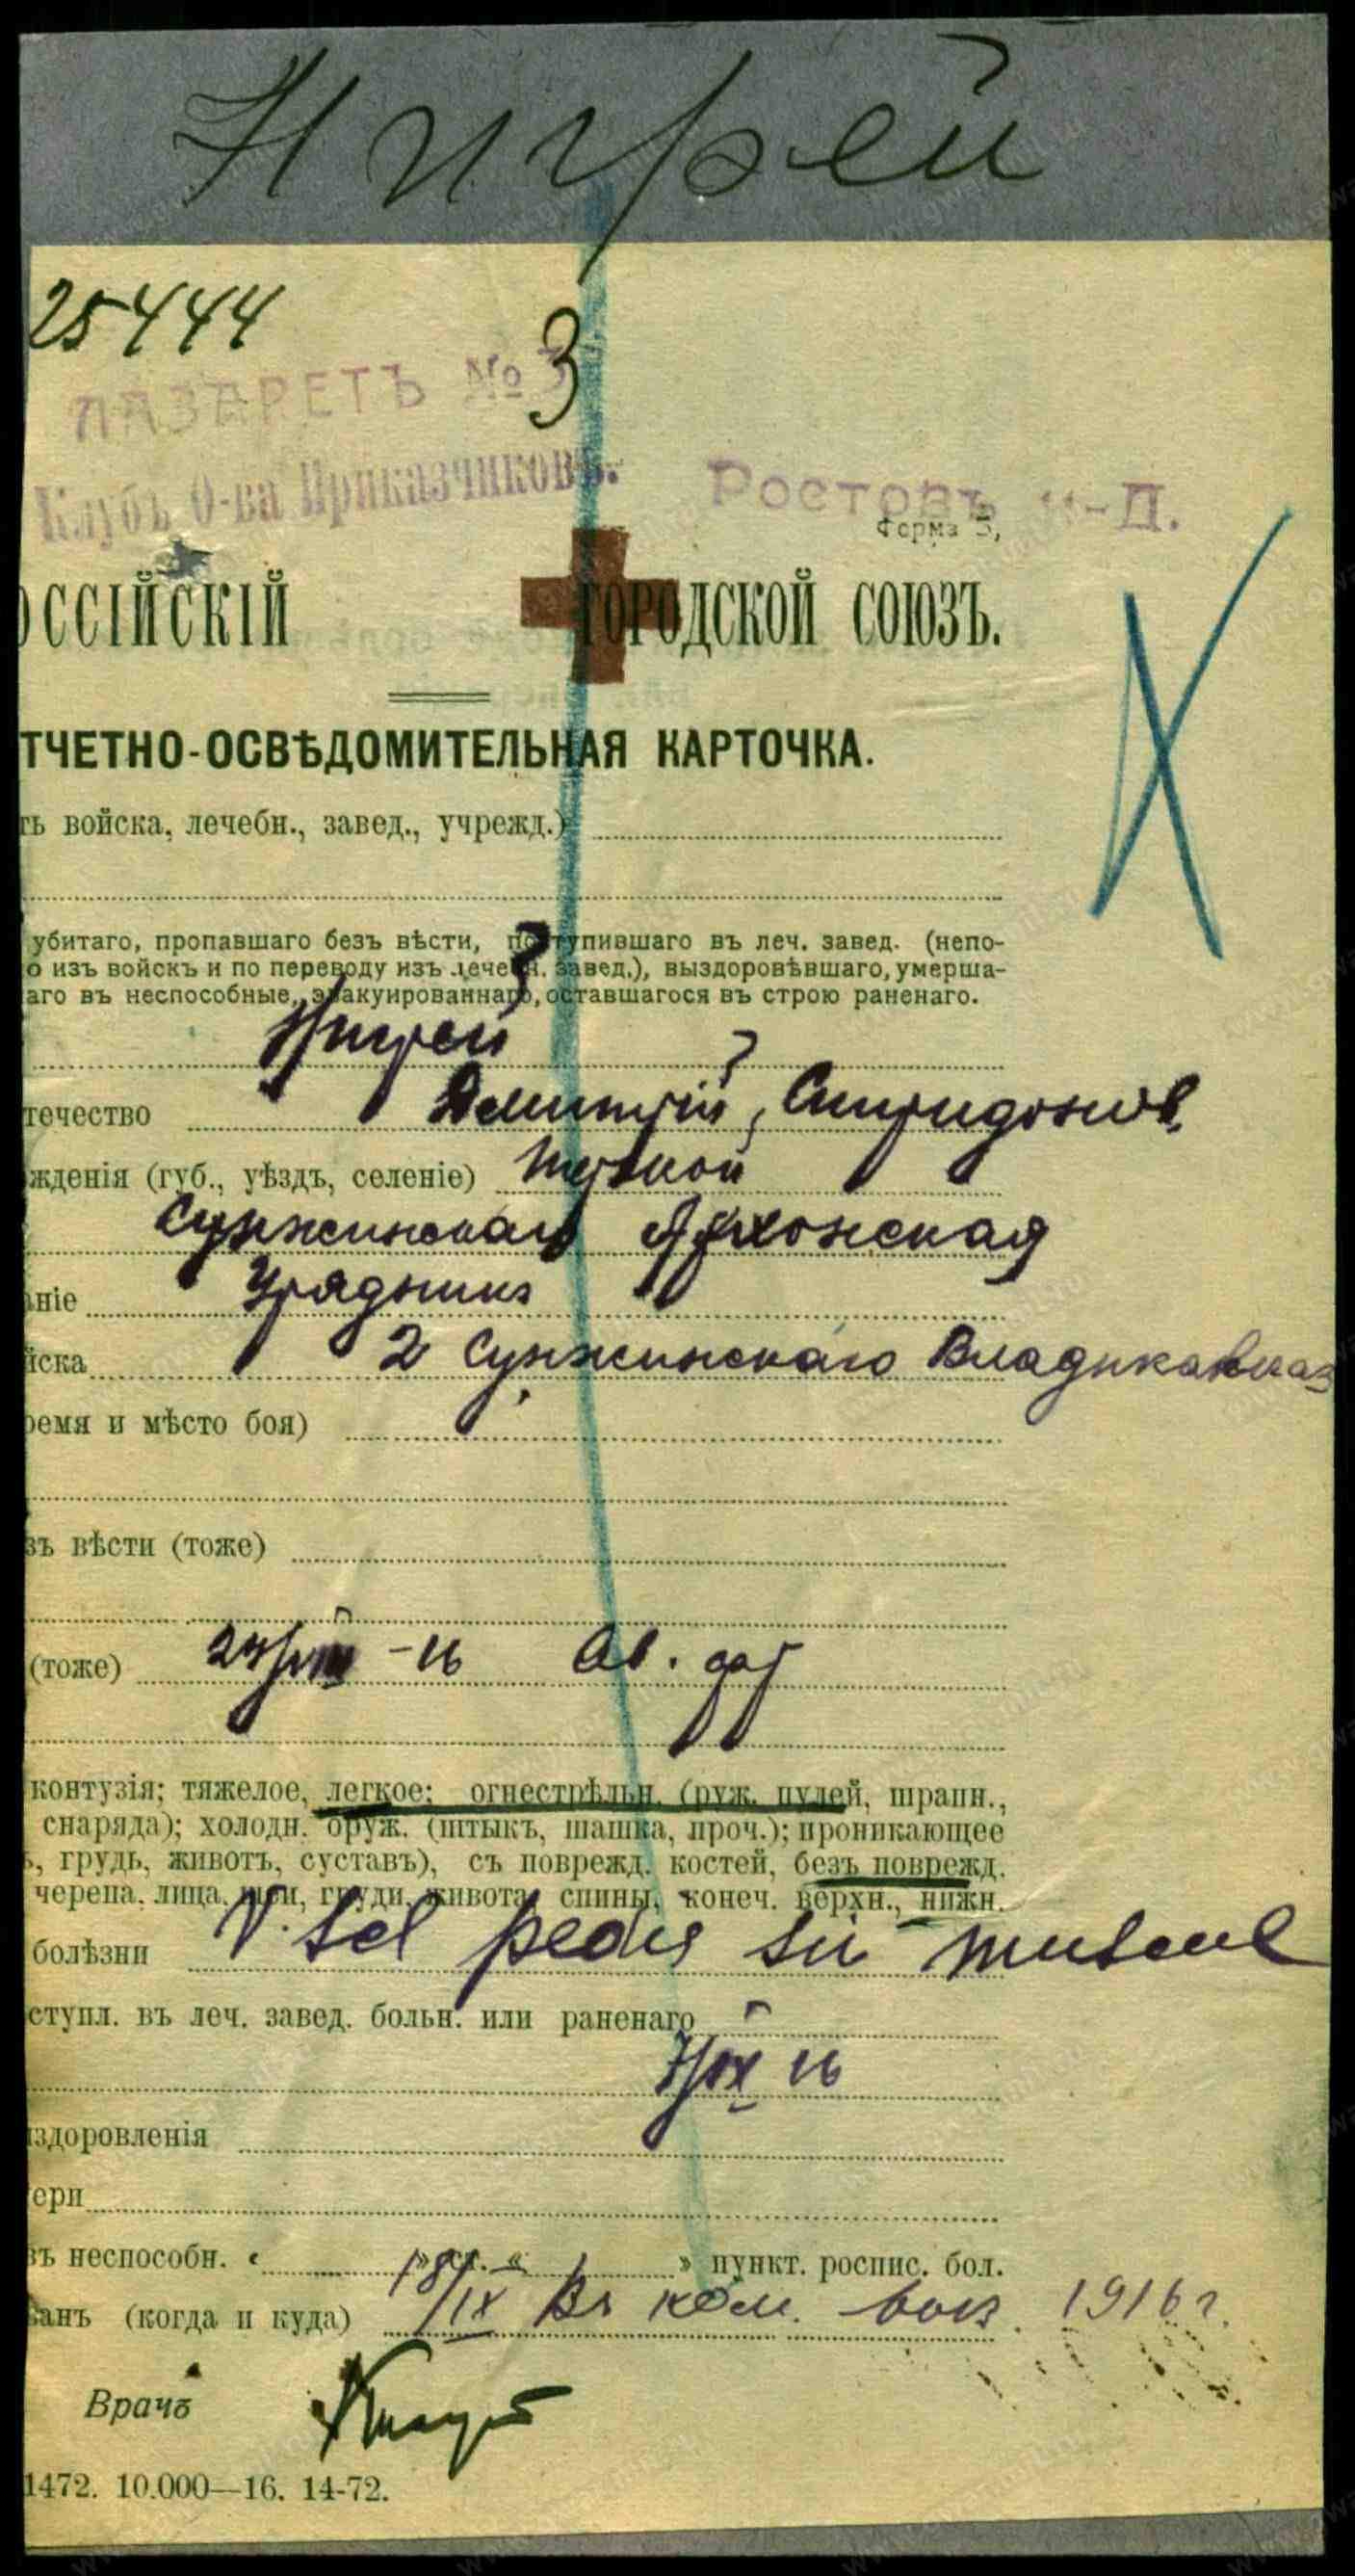 Нирей
25444
ЛАЗАРЕТЪ № 3
Клубъ О-ва Приказчиковъ. Ростовъ н-Д.
Форма 3,
ОССІЙСКІЙ ГОРОДСКОЙ СОЮЗЪ.
ТЧЕТНО-ОСВѢДОМИТЕЛЬНАЯ КАРТОЧКА.
ть войска, лечебн., завед., учрежд.)
убитаго, пропавшаго безъ вѣсти, поступившаго въ леч. завед. (непо-
о изъ войскъ и по переводу изъ лечебн. завед.), выздоровѣвшаго, умерша-
аго въ неспособные, эвакуированнаго, оставшагося въ строю раненаго.
Нирей
течество Дмитрій, Спиридонов
жденія (губ., уѣздъ, селеніе) Терской
Сунженскаго Архонская
аніе Урядникъ
йска 2 Сунженскаго Владикавказ
ремя и мѣсто боя)
зъ вѣсти (тоже)
(тоже) 24/VIII -16
контузія; тяжелое, легкое; огнестрѣльн. (руж. пулей, шрапн.,
снаряда); холодн. оруж. (штыкъ, шашка, проч.); проникающее
ь, грудь, животъ, суставъ), съ поврежд. костей, безъ поврежд.
черепа, лица, шеи, груди, живота, спины, конеч. верхн., нижн.
болѣзни V. Scl pedis sin muscul
ступл. въ леч. завед. больн. или раненаго
7/IX 16
ыздоровленія
ери
въ неспособн. « » ст. « » пункт. роспис. бол.
ванъ (когда и куда) 18/IX Въ ком. выз. 1916 г.
Врачъ
1472. 10.000—16. 14-72.